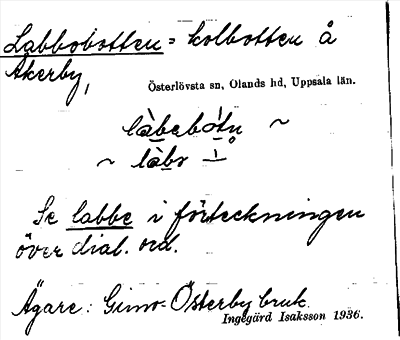 Labbobotten = kolbotten å
Åkerby,
Österlövsta sn, Olands hd, Uppsala län.
làbebót​n ~
~ làbr
Se labbe i förteckningen
över dial. ord.
Ägare: Gimo-Österby bruk.
Ingegärd Isaksson 1936.